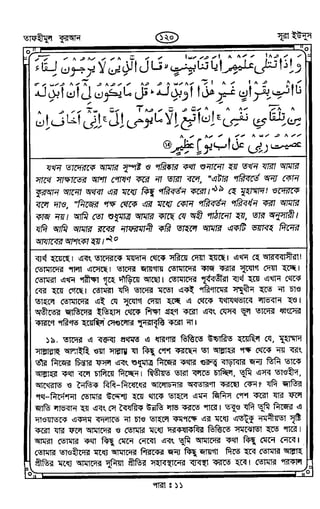 তাফহীমুল কুরআন
১২০
সূরা ইউনুস
وَإِذَا تُتْلَىٰ عَلَيْهِمْ آيَاتُنَا بَيِّنَٰتٍ ۙ قَالَ الَّذِينَ لَا يَرْجُونَ لِقَاءَ
نَا ائْتِ بِقُرْآنٍ غَيْرِ هَٰذَا أَوْ بَدِّلْهُ ۚ قُلْ مَا يَكُونُ لِي أَنْ أُبَدِّلَهُ
مِنْ تِلْقَائِ نَفْسِي ۚ إِنْ أَتَّبِعُ إِلَّا مَا يُوحَىٰ إِلَيَّ ۚ إِنِّي أَخَافُ إِنْ
عَصَيْتُ رَبِّي عَذَابَ يَوْمٍ عَظِيمٍ
যখন তাদেরকে আমার সুস্পষ্ট ও পরিষ্কার কথা শুনানো হয় তখন যারা আমার
সাথে সাক্ষাতের আশা পোষণ করে না তারা বলে, “এটার পরিবর্তে অন্য কোন
কুরআন আনো অথবা এর মধ্যে কিছু পরিবর্তন করো।১৯ হে মুহাম্মাদ! ওদেরকে
বলে দাও, “নিজের পক্ষ থেকে এর মধ্যে কোন পরিবর্তন পরিবর্ধন করা আমার
কাজ নয়। আমি তো শুধুমাত্র আমার কাছে যে অহী পাঠানো হয়, তার অনুসারী।
যদি আমি আমার রবের নাফরমানী করি তাহলে আমার একটি ভয়াবহ দিনের
আযাবের আশংকা হয়।২০
ব্যর্থ হয়েছে। এবং তাদেরকে ময়দান থেকে সরিয়ে দেয়া হয়েছে। এখন হে আরববাসীরা!
তোমাদের পালা এসেছে। তাদের জায়গায় তোমাদের কাজ করার সুযোগ দেয়া হচ্ছে।
তোমরা এখন পরীক্ষা গৃহে দাঁড়িয়ে আছো। তোমাদের পূর্ববর্তীরা ব্যর্থ হয়ে এখান থেকে
বের হয়ে গেছে। তোমরা যদি তাদের মতো একই পরিণামের সম্মুখীন হতে না চাও
তাহলে তোমাদের এই যে সুযোগ দেয়া হচ্ছে এ থেকে যথাযথভাবে লাভবান হও।
অতীতের জাতিদের ইতিহাস থেকে শিক্ষা গ্রহণ করো এবং যেসব ভুল তাদের ধ্বংসের
কারণে পরিণত হয়েছিল সেগুলোর পুনরাবৃত্তি করো না।
১৯. তাদের এ বক্তব্য প্রথমত এ ধারণার ভিত্তিতে উচ্চারিত হয়েছিল যে, মুহাম্মাদ
সাল্লাল্লাহু আলাইহি ওয়া সাল্লাম যা কিছু পেশ করছেন তা আল্লাহর পক্ষ থেকে নয় বরং
তাঁর নিজের চিন্তার ফসল এবং শুধুমাত্র নিজের কথার গুরুত্ব বাড়াবার জন্য তিনি তাকে
আল্লাহর কথা বলে চালিয়ে দিচ্ছেন। দ্বিতীয়ত তারা বলতে চাচ্ছিল, তুমি এসব তাওহীদ,
আখেরাত ও নৈতিক বিধি-নিষেধের আলোচনার অবতারণা করছো কেন? যদি জাতির
পথ-নির্দেশনা তোমার উদ্দেশ্য হয়ে থাকে তাহলে এমন জিনিস পেশ করো যার ফলে
জাতি লাভবান হয় এবং সে বৈষয়িক উন্নতি লাভ করতে পারে। তবুও যদি তুমি নিজের এ
দাওয়াতকে একদম বদলাতে না চাও তাহলে কমপক্ষে এর মধ্যে এতটুকু নমনীয়তা সৃষ্টি
করো যার ফলে আমাদের ও তোমার মধ্যে দরকষাকষির ভিত্তিতে সমঝোতা হতে পারে।
আমরা তোমার কথা কিছু মেনে নেবো এবং তুমি আমাদের কথা কিছু মেনে নেবে।
তোমার তাওহীদের মধ্যে আমাদের শিরকের জন্য কিছু জায়গা দিতে হবে তোমার আল্লাহ
প্রীতির মধ্যে আমাদের দুনিয়া প্রীতির সহাবস্থানের ব্যবস্থা করতে হবে। তোমার পরকাল
পারা : ১১